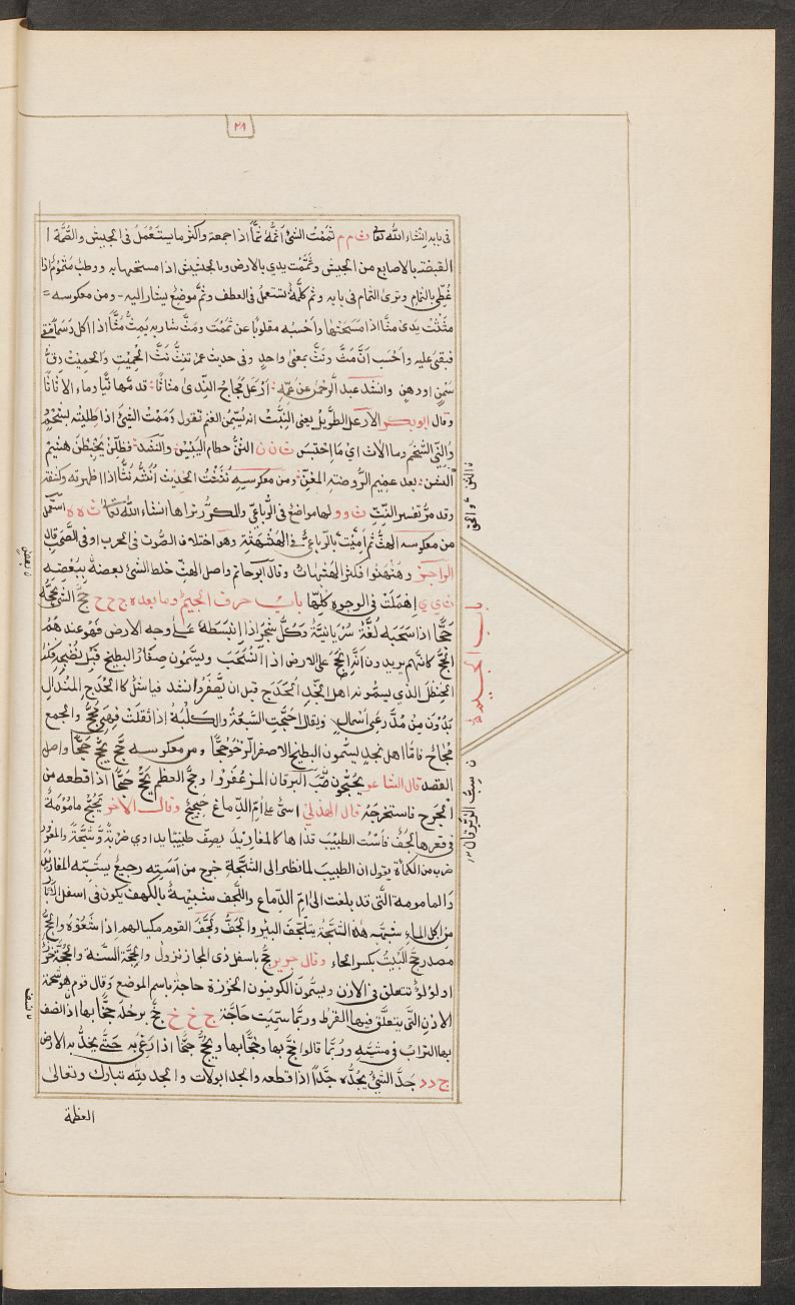 ٢٨
في بابه انشاء الله تعا ث م م ثممت الشئ اثمه ثما اذا جمعته واكثر ما يستعمل في الحشيش والثمة ا
القبضة بالاصابع من الحشيش وثممت يدي بالارض وبالحشيش اذا مسحتها به ووطب مثموم اذا
غطي بالثمام وترى الثمام في بابه وثم كلمة تستعمل في العطف وثم موضع يشار اليه - ومن معكوسه =
مثثت يدي مثا اذا مسحتها واحسبه مقلوبا عن ثممت ومث شاربه يمث مثا اذا اكل دسما
فبقي عليه واحسب ان مث ونث بمعنى واحد وفي حديث عمر تنث نث الحميت والحميت زق
سمن او دهن وانشد عبد الرحمن عن عمه ارعل مجاج الندى مثاثا
وقال ابو بكر الارعل الطويل يعني النبت انه يسمن الغنم تقول دممت الشئ اذا طليته بشحم
ث ن ن الثن حطام اليبيس وانشد فظلن يخبطن هشيم
الثن بعد عميم الروضة المغن ومن معكوسه نثثت الحديث انثه نثا اذا اظهرته
وقد مر تفسير النث ث و و لها مواضع في الرباعي والمكرر تراها انشاء الله تعا ث ه ه استعمل
من معكوسه الهث ثم اميت بالرباعي في الهثهثة وهو اختلاف الصوت في الحرب او في الصخب قال
الراجز وهثهثوا فكثر الهثهاث وقال ابو حاتم واصل الهث خلط الشئ بعضه ببعضه
ث ي ي اهملت في الوجوه كلها باب حرف الجيم وما بعده ج ح ح جح الشئ يجحه
جحا اذا سحبه لغة يمانية وكل شجر اذا انبسط على وجه الارض فهو عندهم
الجح كانهم يريدون انه انجح على الارض اذا انسحب ويسمون صغار البطيخ قبل نضجه
الحنظل الذي يسمونه اهل نجد الحدج قبل ان يصفر وانشد فياشل كالحدج المندال
بدون من مدرعي اسمال ويقال اجحت السبعة والكلبة اذا ثقلت فهي مجح والجمع
مجاح فاما اهل نجد يسمون البطيخ الاصفر الرخو جحا ومن معكوسه حج يحج حجا واصله
القصد قال الشاعر يحجون سب الزبرقان المزعفرا وحج العظم يحج حجا اذا قطعه من
الجرح فاستخرجه قال الهذلي اسى على ام الدماغ حجيج وقال الاخر يحج مامومة
في قعرها لجف فاست الطبيب قذاها كالمغاريد يصف طبيبا يداوي ضربة وشجة والمغرود
ضرب من الكماة يقول ان الطبيب لما نظر الى الشجة خرج من استه رجيع يشبه المغاريد
والمامومة التي قد بلغت الى ام الدماع واللجف شبيه بالكهف يكون في اسفل
من اكل الماء شبه هذه الشجة بتلجف البئر
مصدر حج البيت بكسر الحاء وقال جرير حج باسفل ذي المجاز نزول والحجة السنة والحجة خرزة
او لؤلؤ تتعلق في الاذن ويسمون الكوفيون الخرزة حاجة باسم الموضع وقال قوم هو شحمة
الاذن التي يتعلق فيها القرط وربما سميت حاجة ج خ خ جخ برجله جخا بها اذا نسف
بها التراب في مشيه وربما قالوا خج بها
ج د د جد الشئ يجده جدا اذا قطعه والجد ابو لاب والجد لله تبارك وتعالى
العظمة
باب الجيم
ن سب الزبرقان
ن نسف